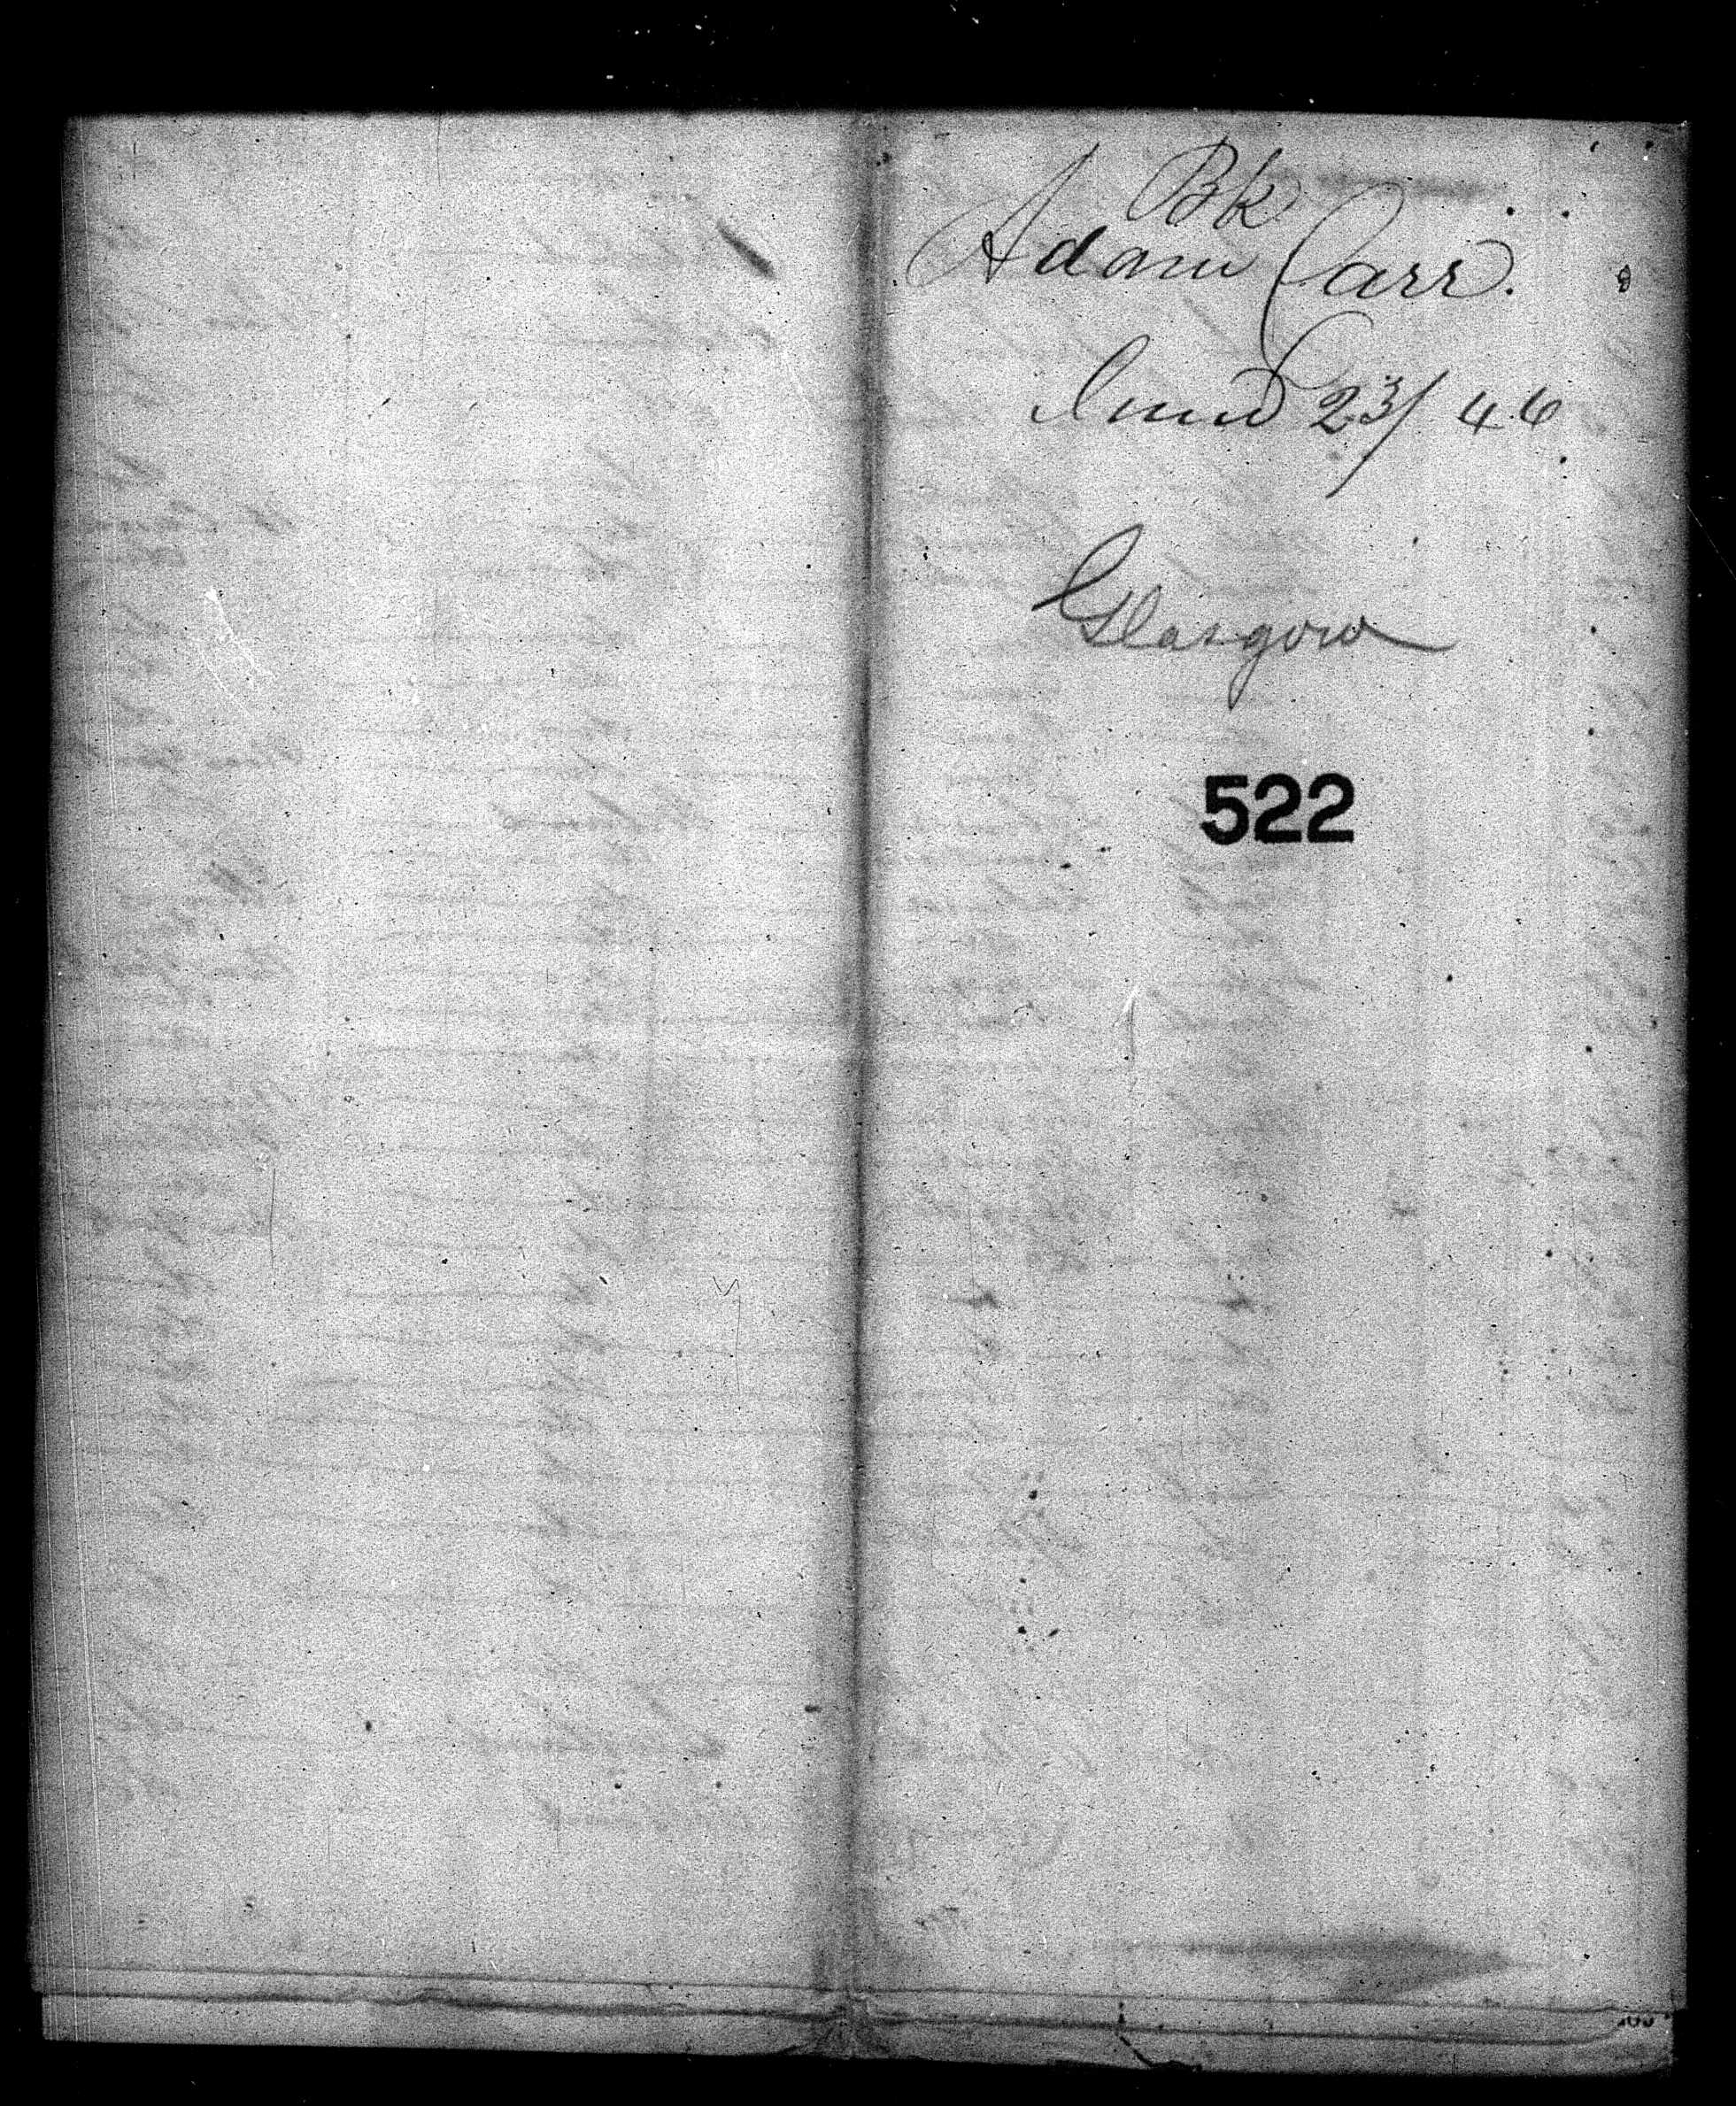 Bk
Adam Carr.
June 23/46
Glasgow
522